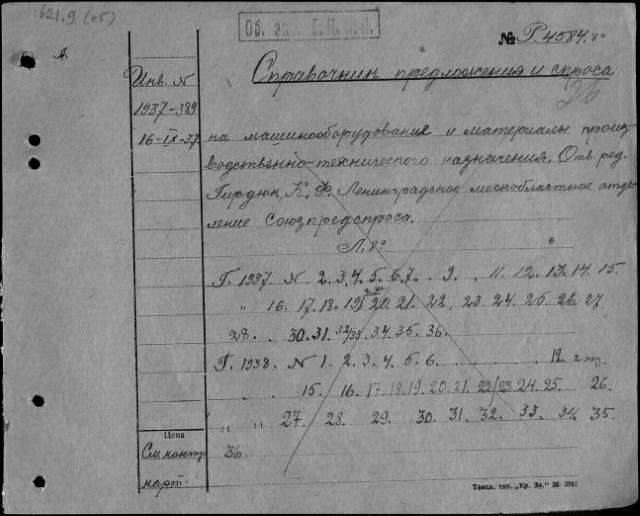 621.9 (05)
Об. экз. Г.К.П.
№ Р.4584.80
А.
Инв. N
1937-389
16-IX-37
Справочник предложения и спроса
26
на машинооборудование и материалы произ
водственно-технического назначения. Отв. ред.
Гирдюк, К. Ф. Ленинградское межобластное отде
ление Союзпредспроса.
Л. 8°
Г. 1937. N 2. 3. 4. 5. 6. 7. . 9. . 11. 12. 13. 14. 15.
" 16. 17. 18. 19 20. 21. 22. 23. 24. 25. 26. 27
28. . 30. 31. 32/33. 34. 35. 36.
Г. 1938. N 1. 2. 3. 4. 5. 6. 12.
15. 16. 17. 18. 19. 20. 21. 22/23 24. 25. 26.
" " 27. 28. 29. 30. 31. 32. 33. 34. 35.
36.
Цена
См. контр
карт.
Томск. тип. „Кр. Зн." 36-3041